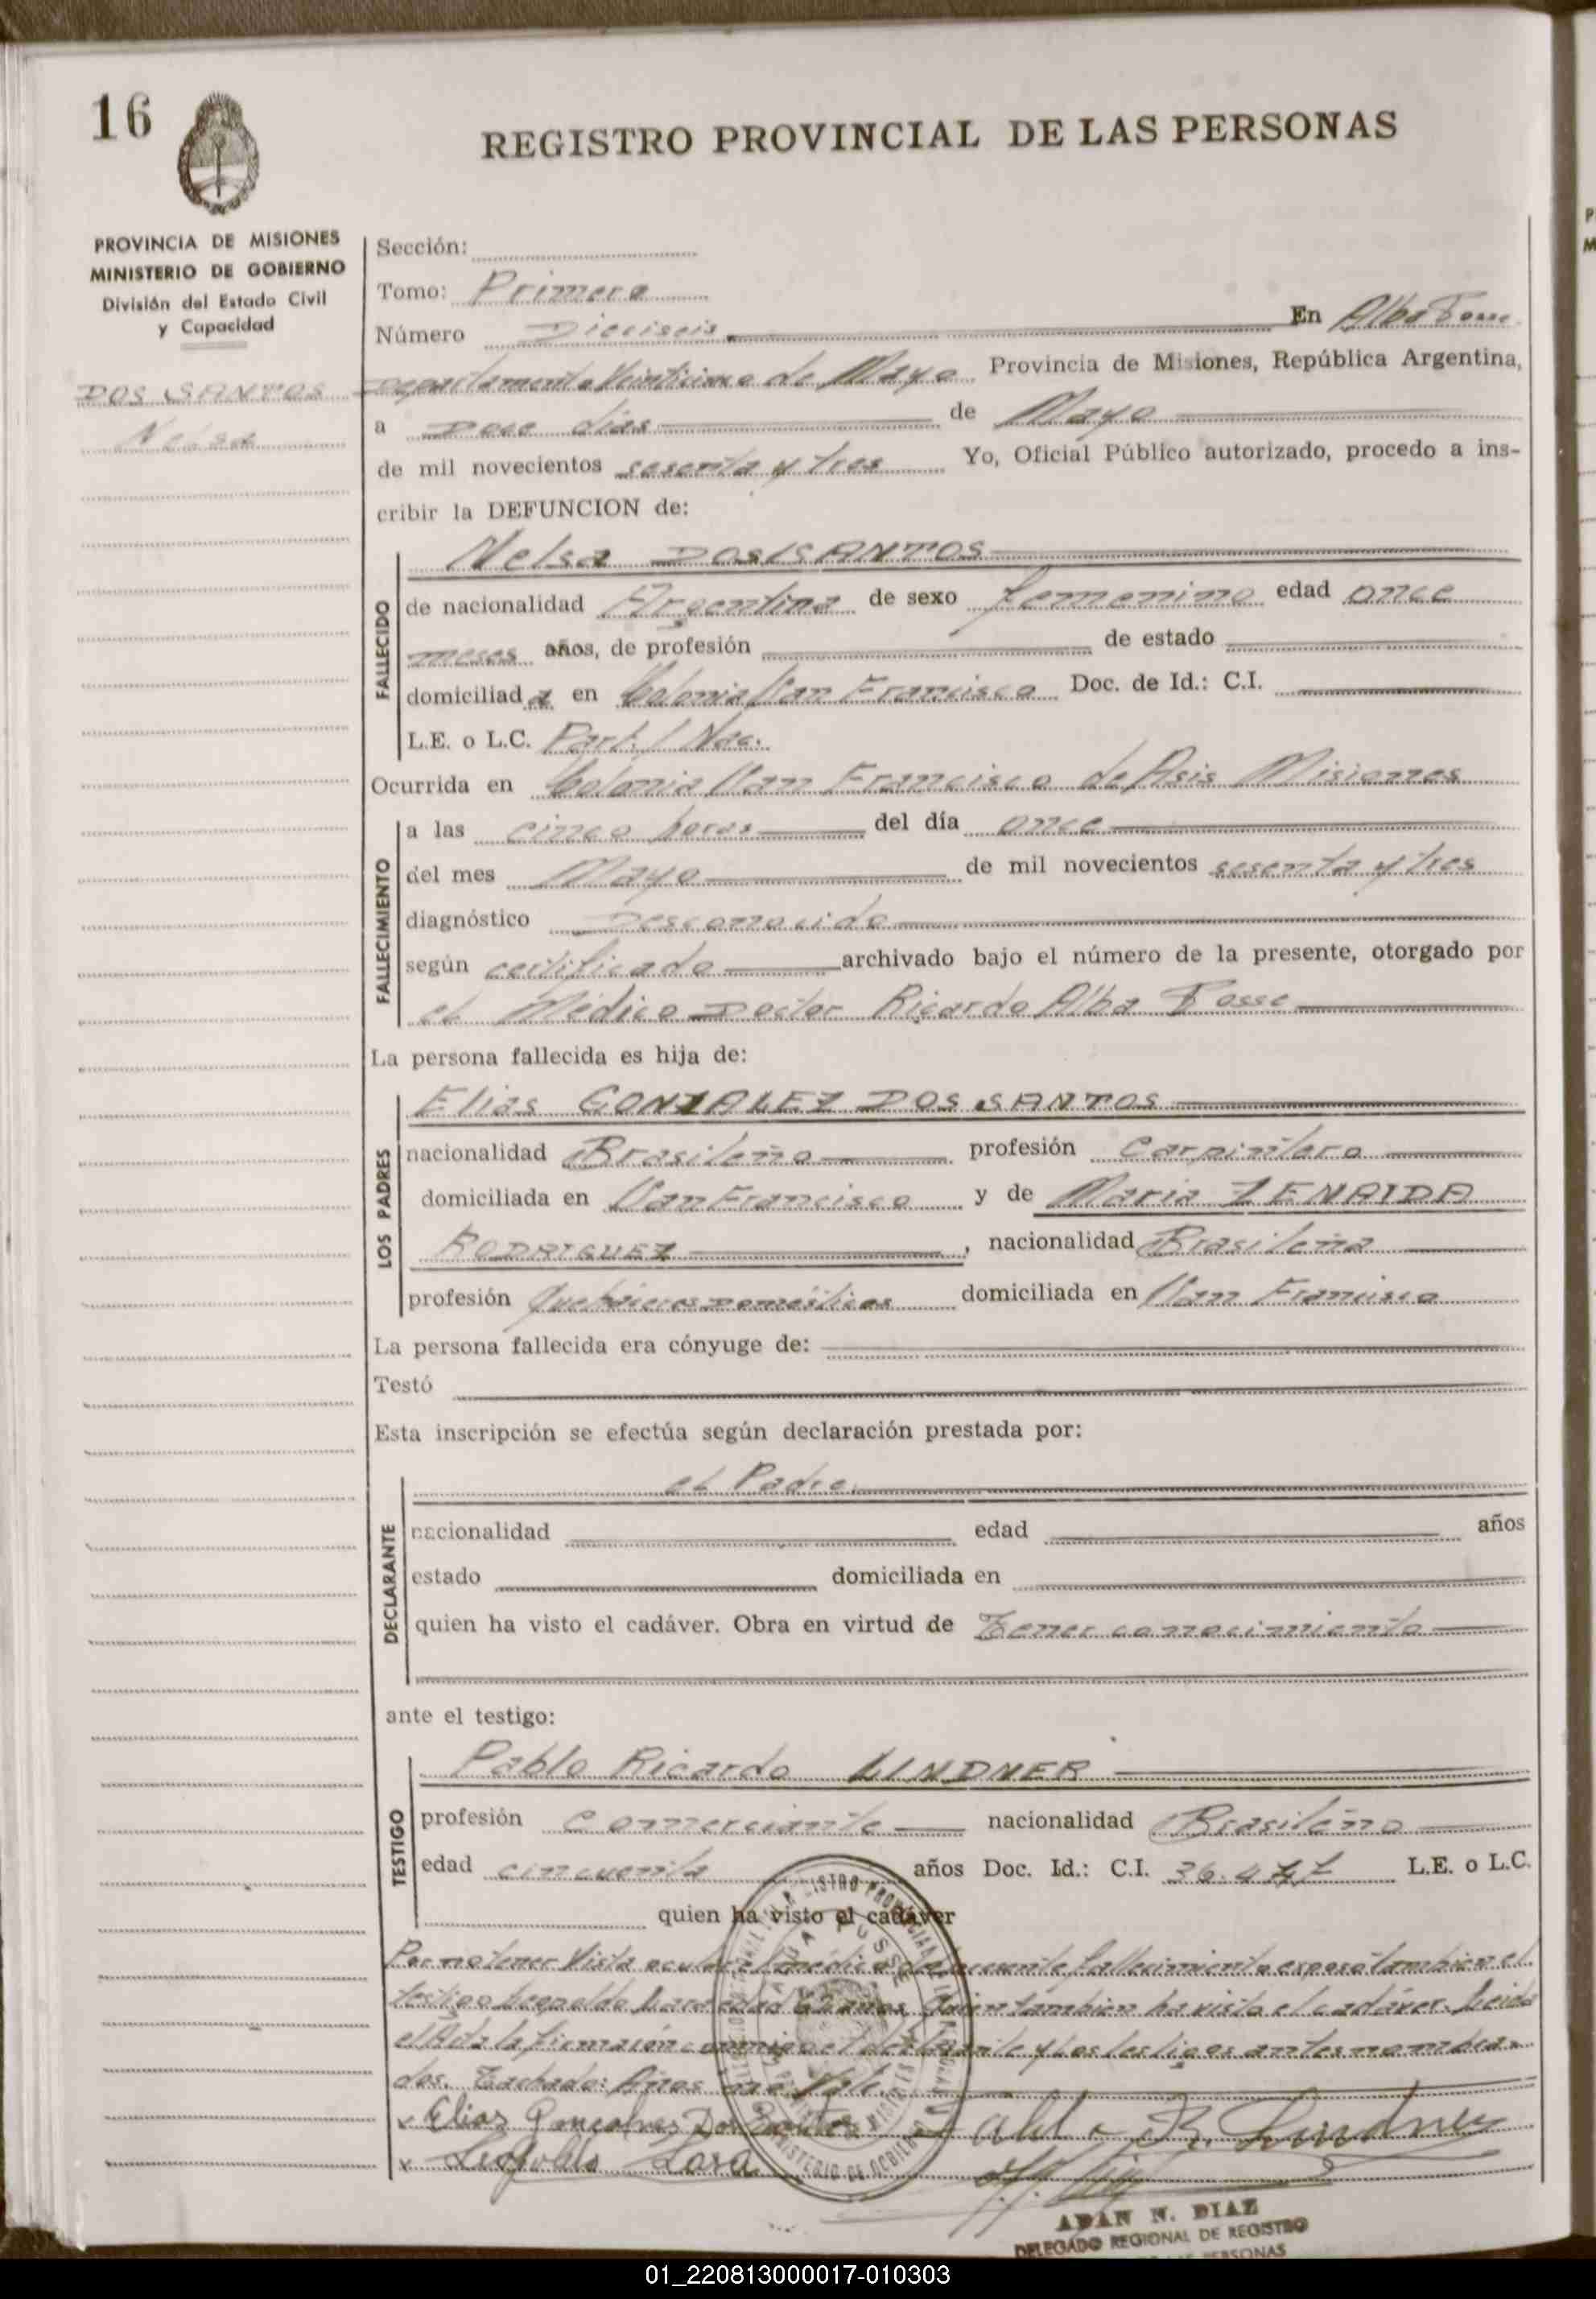 16
REGISTRO PROVINCIAL DE LAS PERSONAS
PROVINCIA DE MISIONES
MINISTERIO DE GOBIERNO
División del Estado Civil
y Capacidad
DOS SANTOS
Nelsa
Sección:
Tomo: Primero
Número Dieciseis En Alba Posse
Departamento Veinticinco de Mayo Provincia de Misiones, República Argentina,
a Doce dias de Mayo
de mil novecientos sesenta y tres Yo, Oficial Público autorizado, procedo a ins-
cribir la DEFUNCION de:
FALLECIDO
Nelsa DOS SANTOS
de nacionalidad Argentina de sexo femenino edad once
meses años, de profesión de estado
domiciliada en Colonia San Francisco Doc. de Id.: C.I.
L.E. o L.C. Part. / Nac.
Ocurrida en Colonia San Francisco de Asis Misiones
FALLECIMIENTO
a las cinco horas del día once
del mes Mayo de mil novecientos sesenta y tres
diagnóstico Desconocido
según certificado archivado bajo el número de la presente, otorgado por
el Médico Doctor Ricardo Alba Posse
La persona fallecida es hija de:
LOS PADRES
Elias GONZALEZ DOS SANTOS
nacionalidad Brasileño profesión Carpintero
domiciliada en San Francisco y de Maria ZENAIDA
RODRIGUEZ, nacionalidad Brasileña
profesión Quehaceres Domésticos domiciliada en San Francisco
La persona fallecida era cónyuge de:
Testó
Esta inscripción se efectúa según declaración prestada por:
DECLARANTE
el Padre.
nacionalidad edad años
estado domiciliada en
quien ha visto el cadáver. Obra en virtud de Tener conocimiento
ante el testigo:
TESTIGO
Pablo Ricardo LINDNER
profesión Comerciante nacionalidad Brasileño
edad cincuenta años Doc. Id.: C.I. 36.4 L.E. o L.C.
quien ha visto el cadáver
Por no tener Vista ocular el médico del presente fallecimiento expuso tambien el
testigo Leopoldo Lara edad años Quien tambien ha visto el cadáver. Leida
el Acta la firmaron conmigo el declarante y los testigos antes nombra-
dos. Tachado: Años, no Vale.
x Elias Gonçalves Dos Santos Pablo R. Lindner
x Leopoldo Lara
ADAN N. DIAZ
DELEGADO REGIONAL DE REGISTRO
DE LAS PERSONAS
01_220813000017-010303